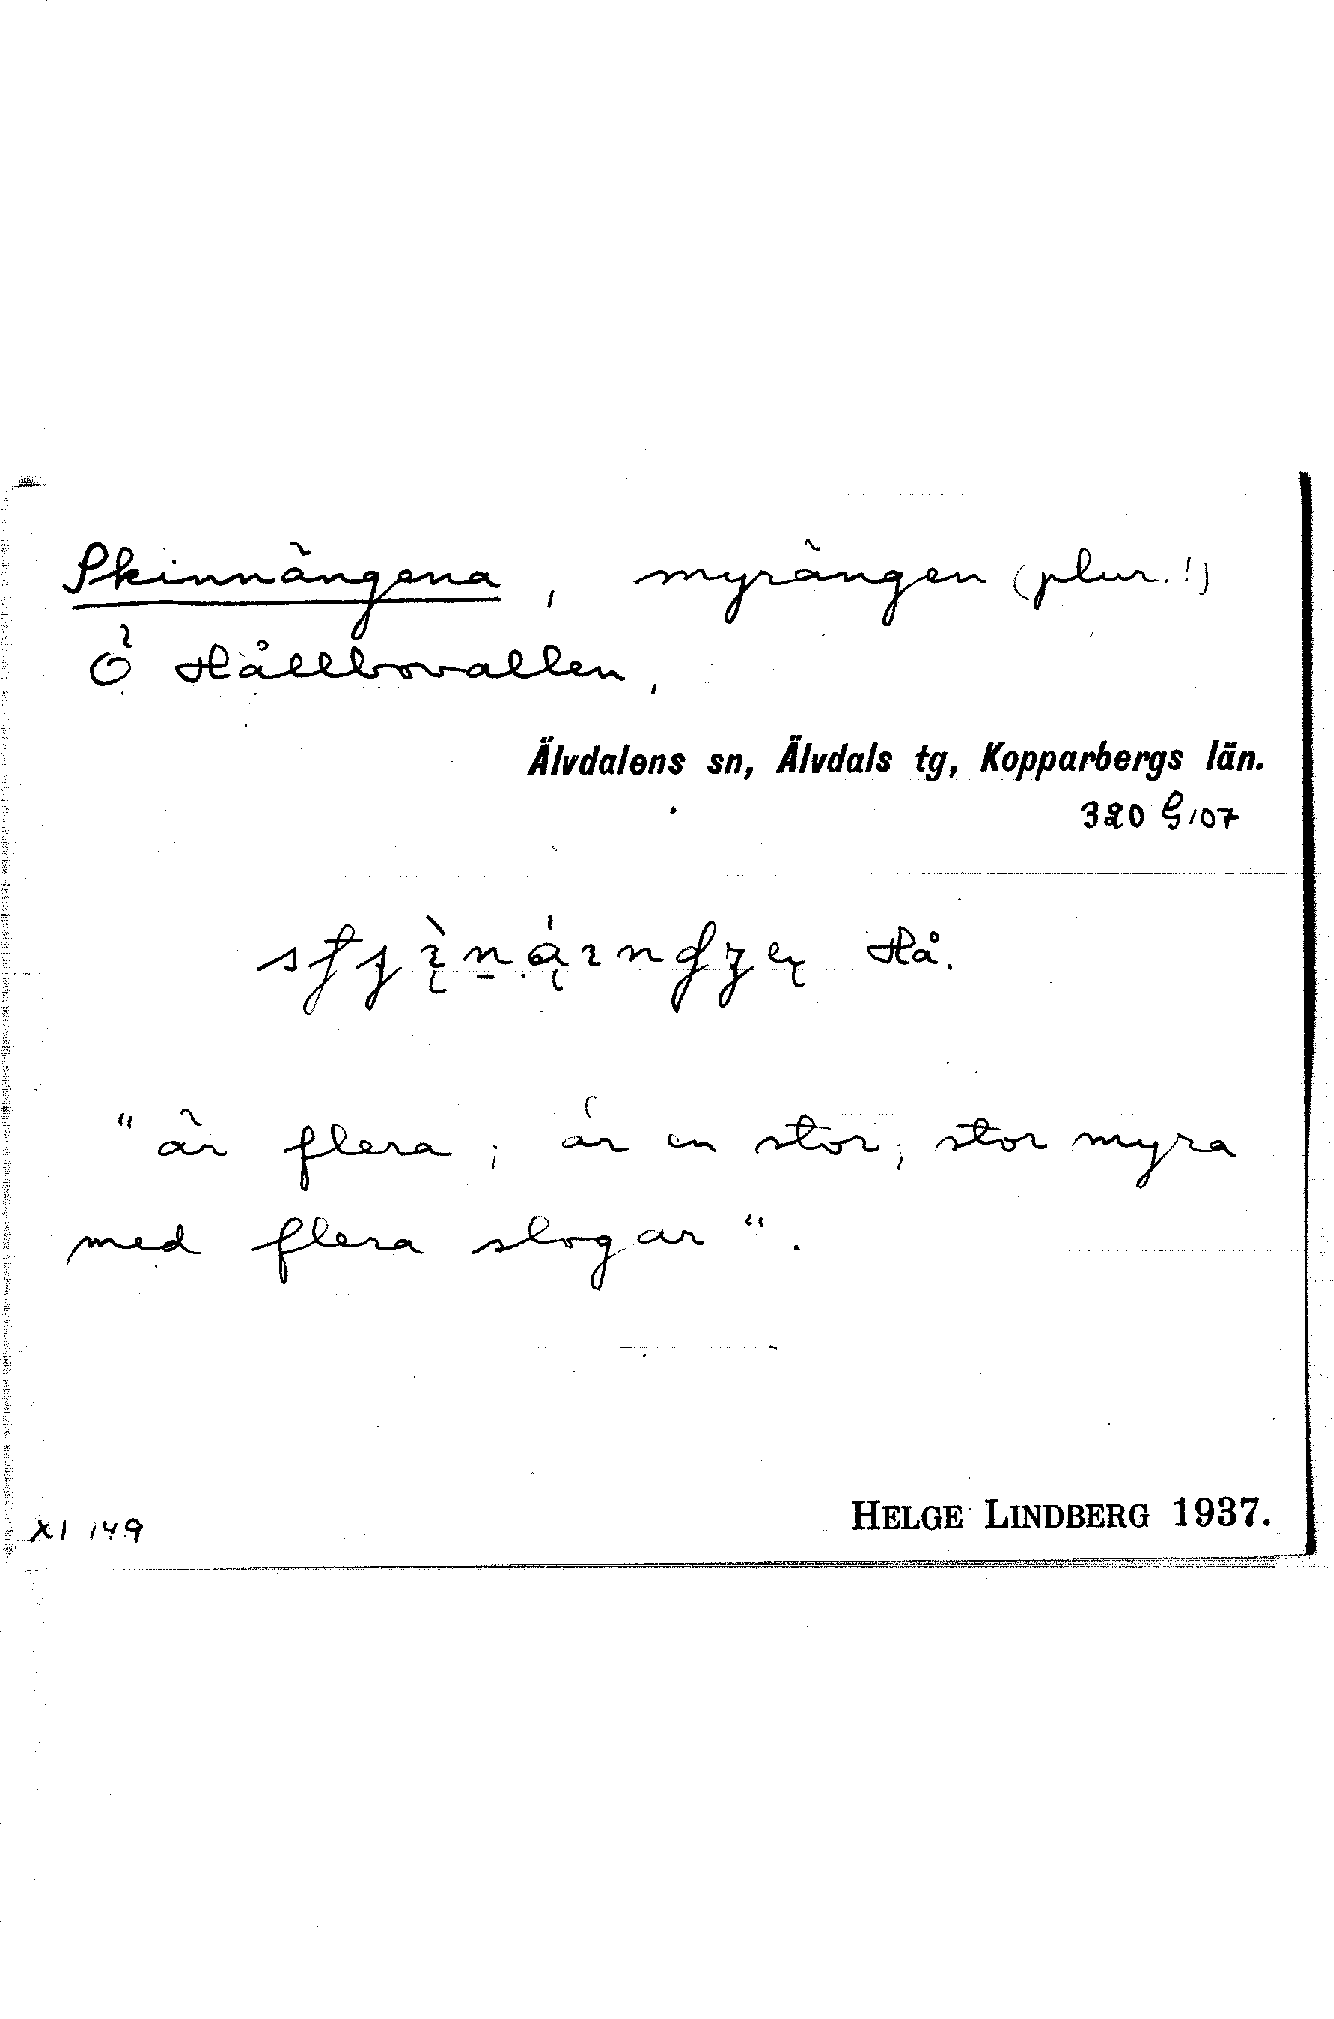 Skinnängena, myrängen (plur.!)
Ö Hållbovallen,
Älvdalens sn, Älvdals tg, Kopparbergs län.
320 G 107
Hå.
"är flera; är en stor, stor myra
med flera slogar".
XI 149
HELGE LINDBERG 1937.